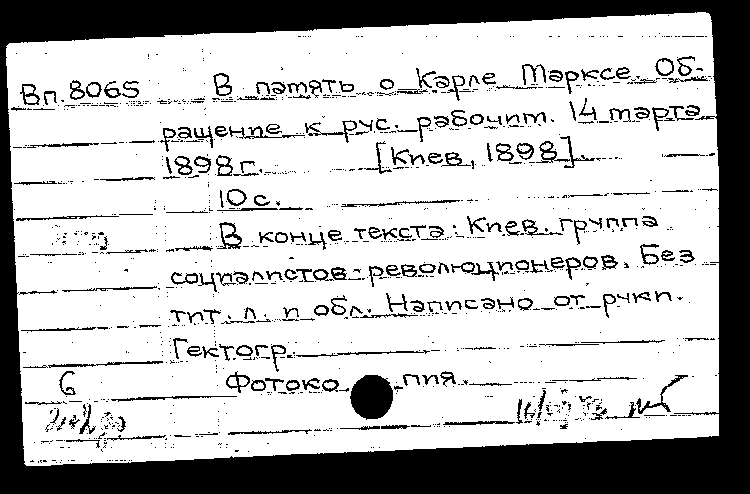 Вп.8065 В память о Карле Марксе. Об-
ращение к рус. рабочим. 14 марта
1898г. [Киев, 1898].
10с.
В конце текста: Киев. группа
социалистов-революционеров. Без
тит. л. и обл. Написано от руки.
Гектогр.
6 Фотокопия.